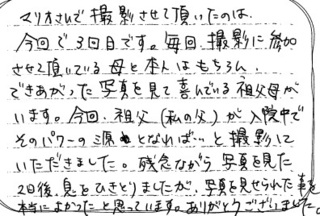 マリオさんで撮影させて頂いたのは、
今回で3回目です。毎回、撮影に参加
させて頂いている母と本人はもちろん、
できあがった写真を見て喜んでいる祖父母が
います。今回、祖父(私の父)が入院中で
そのパワーの源となれば…と撮影に
いただきました。残念ながら写真を見た
2日後、息をひきとりましたが、写真を見せられた事を
本当によかったと思っています。ありがとうございました。